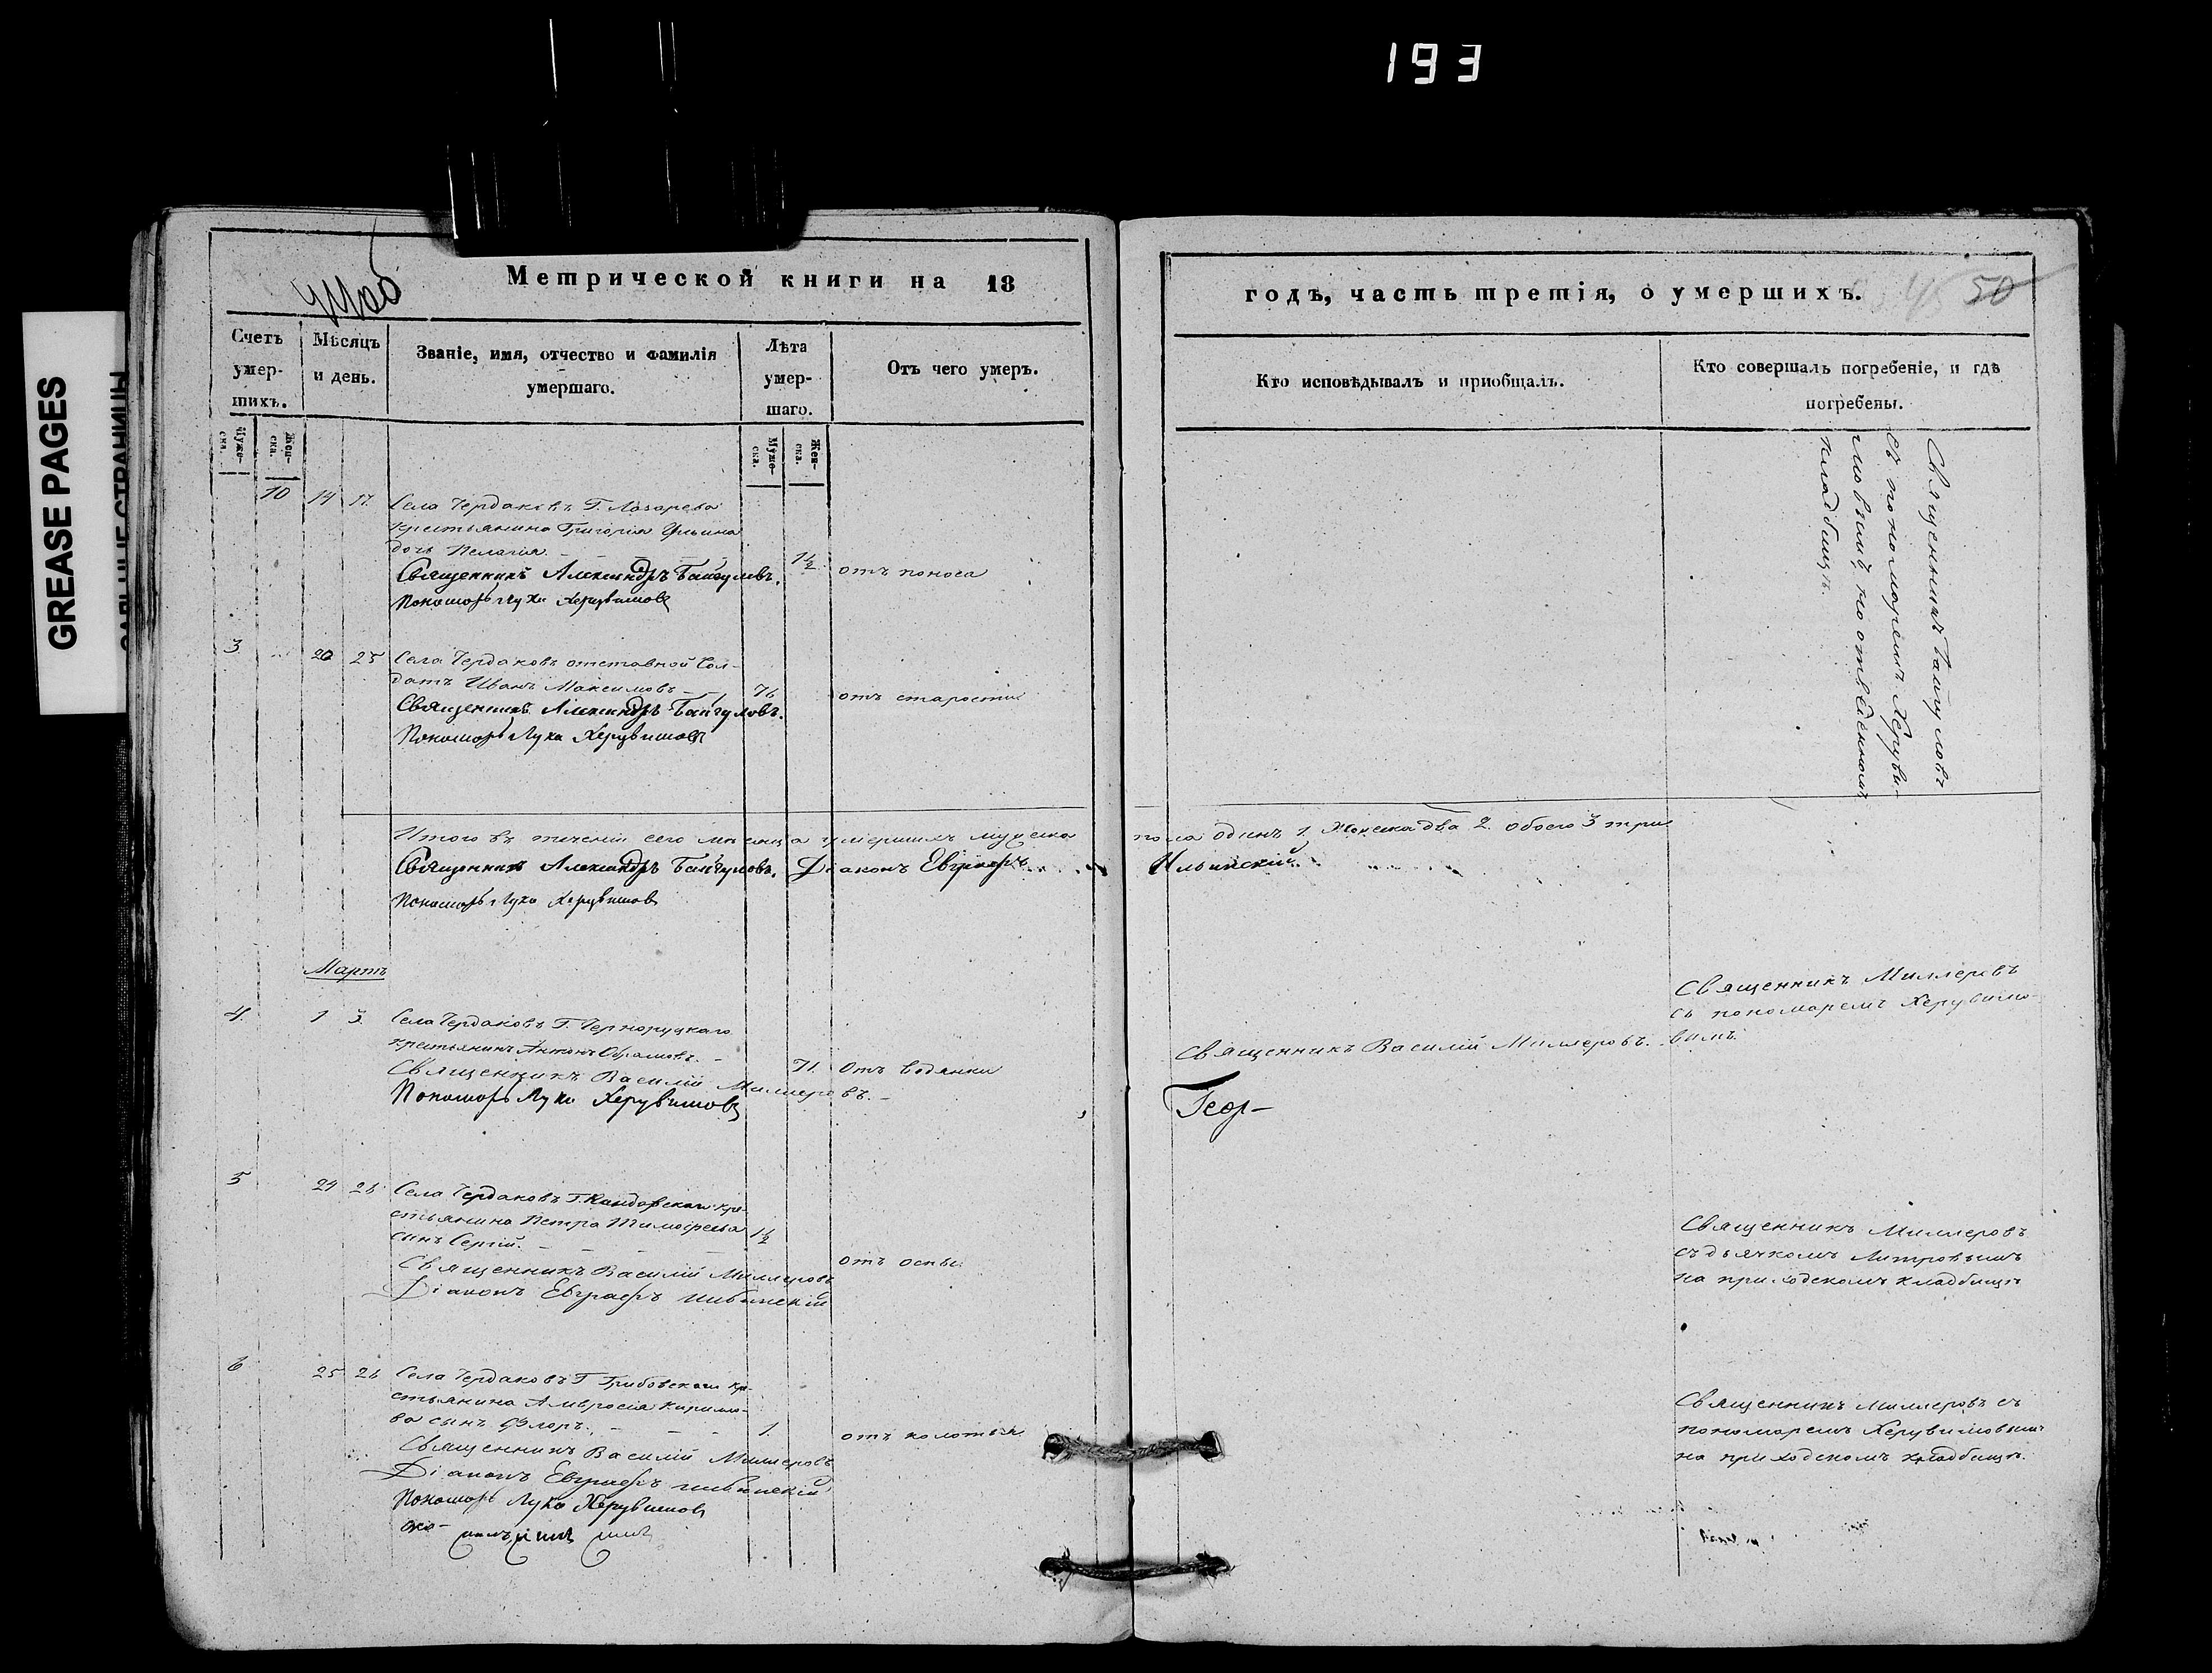 193
GREASE PAGES
Метрической книги на 18
годѣ, часть третія, о умершихъ.
45 50
Счетъ умер-шихъ.
Мѣсяцъ и день.
Званіе, имя, отчество и Фамилія умершаго.
Лѣта умер-шаго.
Отъ чего умеръ.
Кто исповѣдывалъ и пріобщалъ.
Кто совершалъ погребеніе, и гдѣ погребены.
Муже-ска.
Жен-ска.
Муже-ска.
Жен-ска.
10 14 17. Села Чердаковъ Г. Лазарева
крестьянина Григорія Ильина
дочь Пелагія.
1½ отъ поноса
Священникъ Александръ Байгуловъ.
Пономарь Лука Херувимовъ
Священникъ Байгуловъ
съ пономаремъ Херуви-
мовымъ, на отведенномъ
кладбищѣ.
3 20 25 Села Чердаковъ отставной Сол-
датъ Иванъ Максимовъ
76 отъ старости
Священникъ Александръ Байгуловъ.
Пономарь Лука Херувимовъ
Итого въ теченіи сего мѣсяца умершихъ мужска пола одинъ 1. Женска два 2. обоего 3 три
Священникъ Александръ Байгуловъ. Діаконъ Евграфъ Ильинскій
Пономарь Лука Херувимовъ
Мартъ
4. 1 3. Села Чердаковъ Г. Черноруцкаго
крестьянинъ Антонъ Обрамовъ.
71. Отъ водянки
Священникъ Василій Миллеровъ.
Священникъ Миллеровъ
съ пономаремъ Херувимо-
вымъ.
Священникъ Василій Миллеровъ.
Пономарь Лука Херувимовъ
Геор-
5 24 26 Села Чердаковъ Г. кре-
стьянина Петра Тимофеева
сынъ Сергій.
1½ отъ оспы
Священникъ Василій Миллеровъ
Діаконъ Евграфъ Ильинскій
Священникъ Миллеровъ
съ дьячкомъ
на приходскомъ кладбищѣ
6 25 26 Села Чердаковъ Г Грибовскаго кре-
стьянина Амвросія Кирило-
ва сынъ Флоръ.
1. отъ колотья
Священникъ Василій Миллеровъ
Діаконъ Евграфъ Ильинскій
Пономарь Лука Херувимовъ
Священникъ Миллеровъ съ
пономаремъ Херувимовымъ
на приходскомъ кладбищѣ.